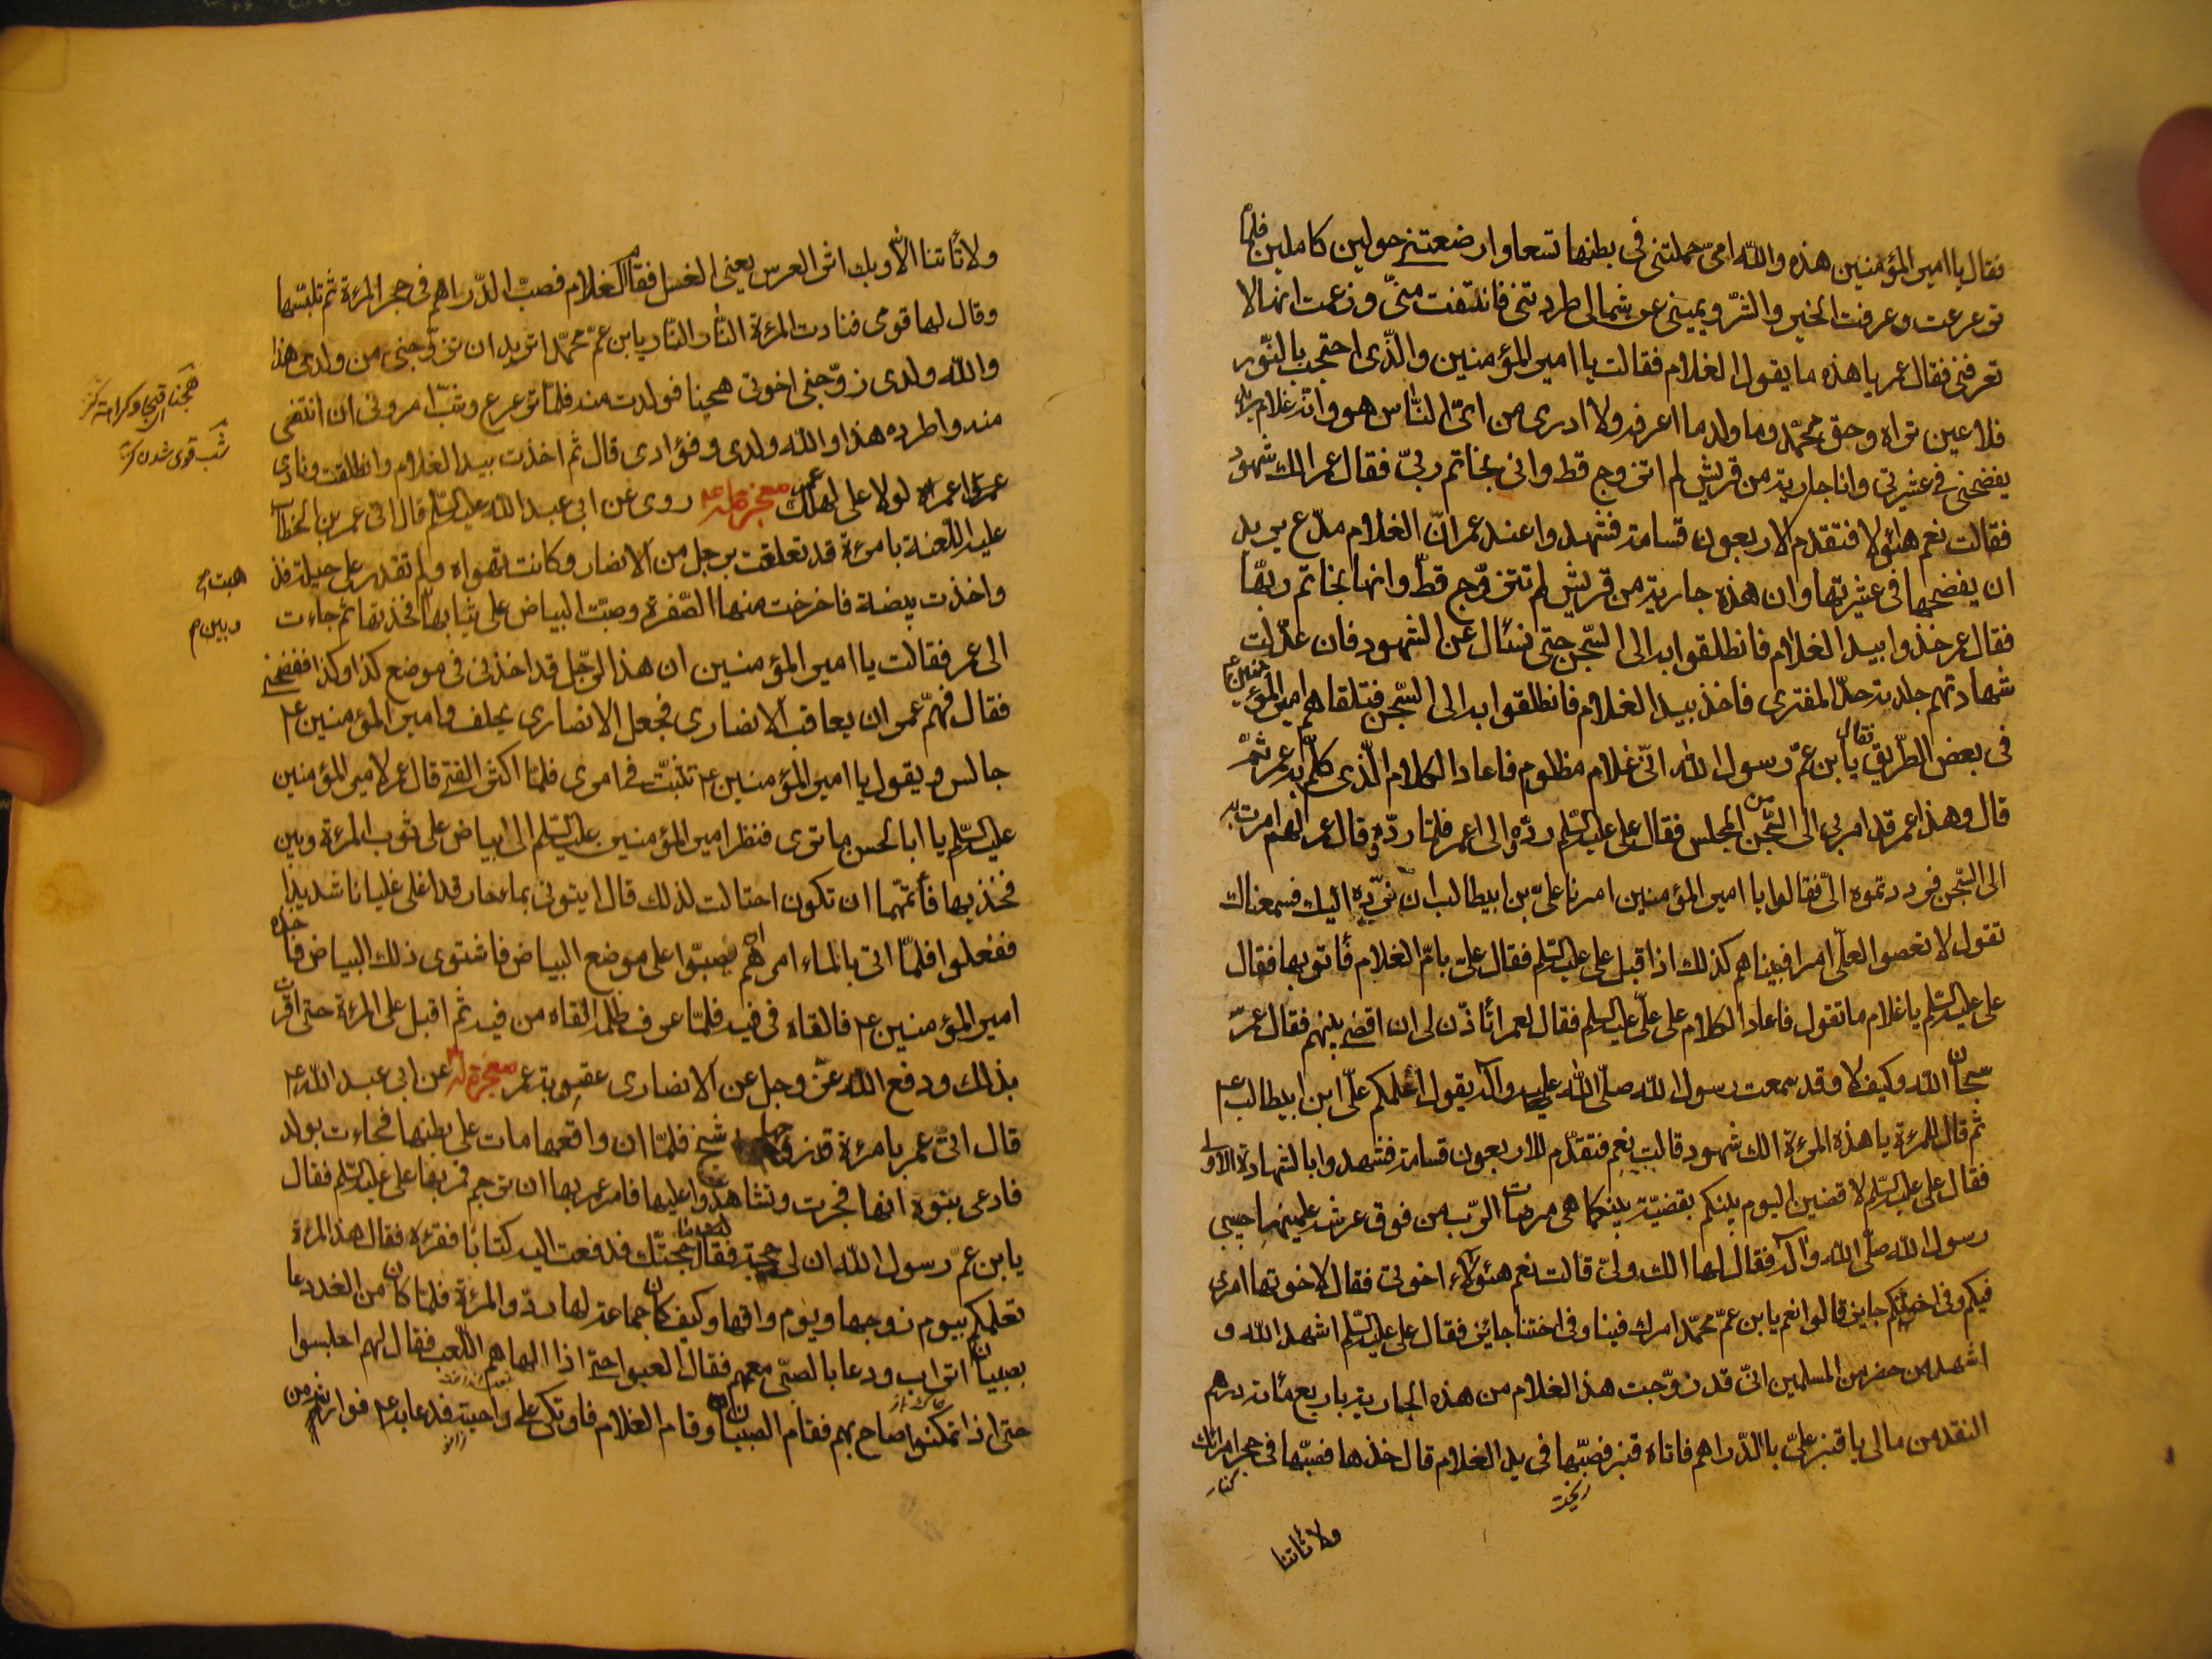 فقال يا امير المؤمنين هذه والله امى حملتنى فى بطنها تسعا وارضعتنى حولين كاملين فلما
ترعرعت وعرفت الخير والشر ويمينى عن شمالى طردتنى فانتفت منى وزعمت انها لا
تعرفنى فقال عمر يا هذه ما يقول الغلام فقالت يا امير المؤمنين والذى احتجب بالنور
فلا عين تراه وحق محمد وما ولد ما اعرفه ولا ادرى من اى الناس هو وانه غلام يريد
يفضحنى فى عشيرتى وانا جارية من قريش لم اتزوج قط وانى بخاتم ربى فقال عمر الك شهود
فقالت نعم هئولا فتقدم الاربعون قسامة فشهدوا عند عمر ان الغلام مدع يريد
ان يفضحها فى عشيرتها وان هذه جارية من قريش لم تتزوج قط وانها بخاتم ربها
فقال عمر خذوا بيد الغلام فانطلقوا به الى السجن حتى نسئال عن الشهود فان عدلت
شهادتهم جلدته حد المفترى فاخذ بيد الغلام فانطلقوا به الى السجن فتلقاهم امير المؤمنين ع
فى بعض الطريق فقال يا بن عم رسول الله انى غلام مظلوم فاعاد الكلام الذى كلم به عمر ثم
قال وهذا عمر قد امر بى الى السجن من المجلس فقال على عليه السلم ردوه الى عمر فلما ردوه قال عمر لهم امرت به
الى السجن فرددتموه الى فقالوا يا امير المؤمنين امرنا على بن ابيطالب ان نرده اليك فسمعناك
تقول لا تعصوا لعلى امرا فبيناهم كذلك اذ اقبل على عليه السلم فقال على بام الغلام فأتو بها فقال
على عليه السلم يا غلام ما تقول فاعاد الكلام على على عليه السلم فقال لعمر أتأذن لى ان اقضى بينهم فقال عمر
سبحان الله وكيف لا وقد سمعت رسول الله صلى الله عليه وآله يقول أعلمكم على ابن ابيطالب ع
ثم قال للمرئة يا هذه المرئة الك شهود قالت نعم فتقدم الاربعون قسامة فشهدوا بالشهادة الاولى
فقال على عليه السلم لاقضين اليوم بينكم بقضية بينكما هى مرضات الرب من فوق عرشه علمنيها حبيبى
رسول الله صلى الله وآله فقال لها الك ولى قالت نعم هئولآء اخوتى فقال لاخوتها امرى
فيكم وفى اختكم جايز قالوا نعم يا بن عم محمد امرك فينا وفى اختنا جائز فقال على عليه السلم اشهد الله و
اشهد من حضر من المسلمين انى قد زوجت هذا الغلام من هذه الجارية باربع مأة درهم
النقد من مالى يا قنبر على بالدراهم فاتاه قنبر فصبها فى يد الغلام قال خذها فصبها فى حجر امراتك
كنار
ريخت
ولا تأتنا
ولا تأتنا الا وبك اثر العرس يعنى الغسل فقام الغلام فصب الدراهم فى حجر المرئة ثم تلبسها
وقال لها قومى فنادت المرئة النار النار يا بن عم محمد اتريد ان تزوجنى من ولدى هذا
والله ولدى زوجنى اخوتى هجينا فولدت منه فلما ترعرع وشب امرونى ان انتفى
منه واطرده هذا والله ولدى وفؤادى قال ثم اخذت بيد الغلام وانطلقت ونادى
عمر وا عمراه لولا على لهلك عمر معجزة له ع روى عن ابى عبد الله عليه السلم قال اتى عمر بن الخطاب
عليه اللعنة بامرئة قد تعلقت برجل من الانصار وكانت تهواه ولم تقدر على حيلة فذ هبت
واخذت بيضة فاخرخت منها الصفرة وصبت البياض على ثيابها بين فخذيها ثم جاءت
الى عمر فقالت يا امير المؤمنين ان هذا الرجل قد اخذنى فى موضع كذا وكذا ففضحنى
فقال فهم عمر ان يعاقب الانصارى فجعل الانصارى يحلف وامير المؤمنين ع
جالس ويقول يا امير المؤمنين ع تثبت فى امرى فلما اكثر الفتى قال عمر لامير المؤمنين
عليه السلم يا ابا الحسن ما ترى فنظر امير المؤمنين عليه السلم الى البياض على ثوب المرئة وبين
فخذيها فأتهمها ان تكون احتالت لذلك قال ايتونى بماء حار قد اغلى غليانا شديدا
ففعلوا فلما اتى بالماء امرهم ان يصبوا على موضع البياض فاشتوى ذلك البياض فاخذه
امير المؤمنين ع فالقاه فى فيه فلما عرف طعمه القاه من فيه ثم اقبل على المرئة حتى اقرت
بذلك ودفع الله عز وجل عن الانصارى عقوبة عمر معجزة له عن ابى عبد الله ع
قال اتى عمر بامرئة قد زوجها شيخ فلما ان واقعها مات على بطنها فجاءت بولد
فادعى بنوه انها فجرت وتشاهدوا عليها فامر عمر بها ان ترجم فمر بها على على عليه السلم فقال
يا بن عم رسول الله ان لى حجة فقال حجتك فدفعت اليه كتابا فقرئه فقال هذه المرئة
تعلمكم بيوم زوجها ويوم واقها وكيف كان جماعه لها ردوا المرئة فلما كان من الغد دعا
بصبيان اتراب ودعا بالصبى معهم فقال العبوا حتى اذا الهاهم اللعب فقال لهم اجلسوا
حتى اذا تمكنوا صاح بهم فقام الصبيان وقام الغلام فاتكى على راحتيه فدعا به ع فوارثه من
شب قوى شدن
هبت
وبين
زانو